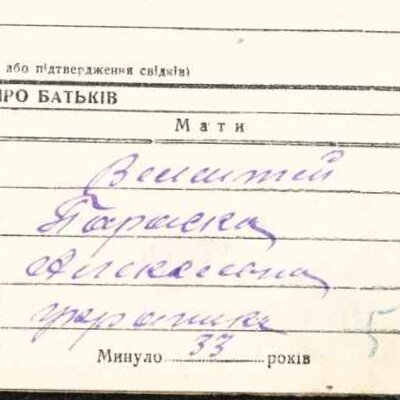 або підтвердження свідків)
ПРО БАТЬКІВ
Мати
Параска
українка
5
Минуло 33 років